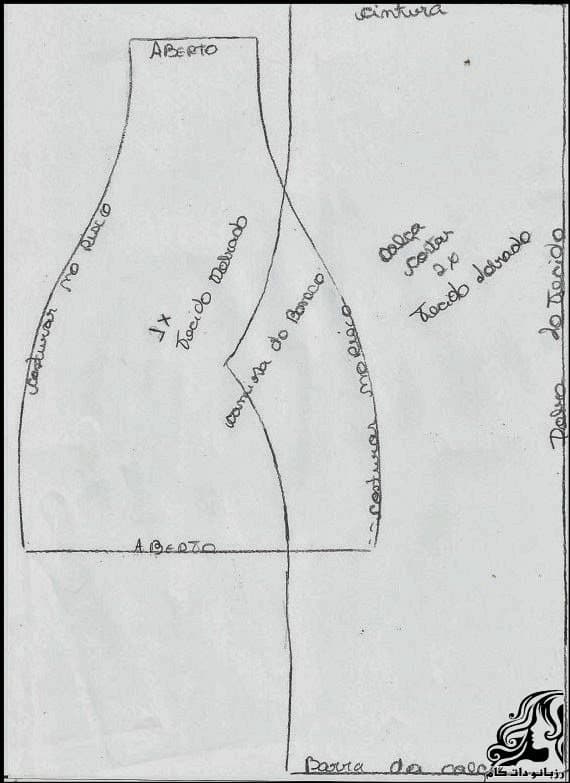 cintura
ABERTO
costurar no Risco
1x
Tecido Dobrado
camisa do Boneco
costurar no Risco
calça
cortar
2x
Tecido dobrado
Dobra do Tecido
ABERTO
Barra da calç
رزبانو دات کام